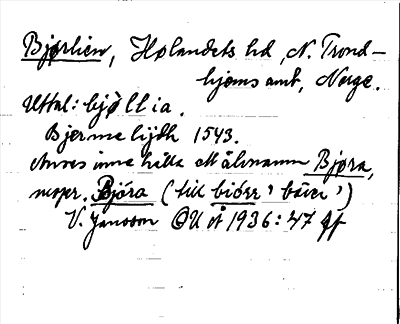 Bjørlien, Hølandets hd, N. Trond-
hjems amt, Norge.
Uttal: bjøllia.
Bjerme lijdh 1543.
Anses innehålla ett älvnamn Bjøra,
nnorr. Bjóra (till biórr 'bäver')
V. Jansson OUÅ 1936: 47 ff